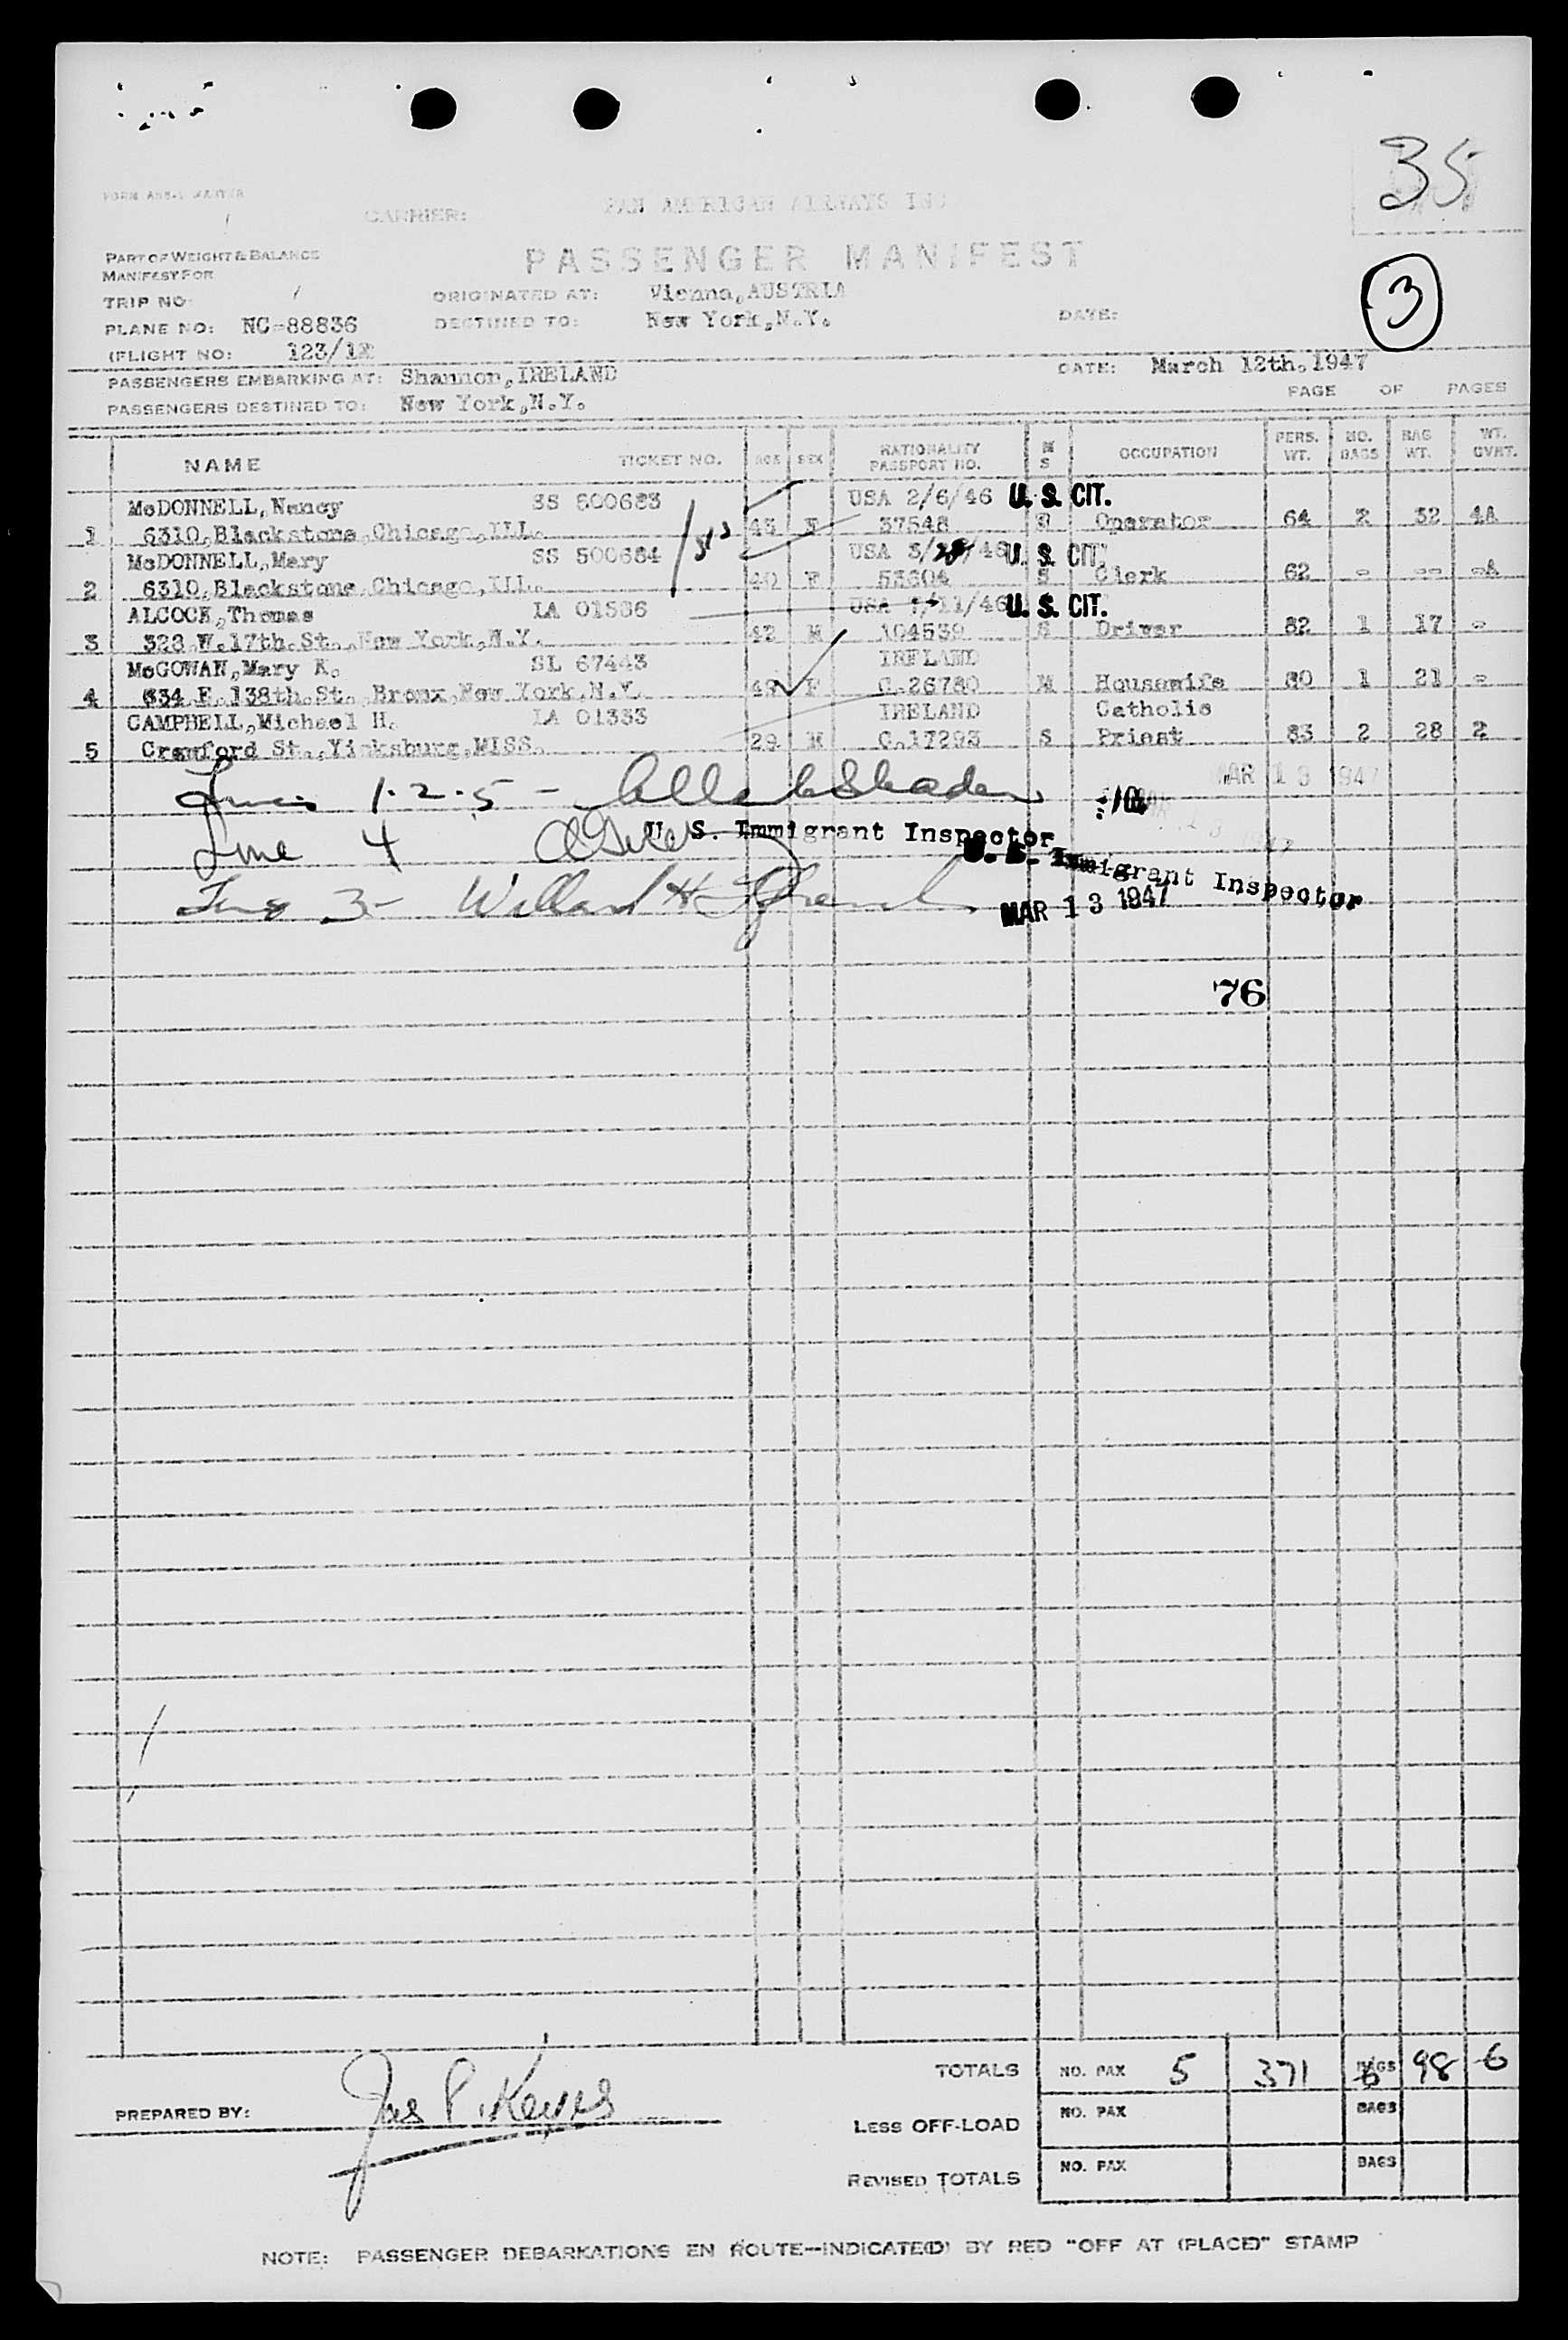 35
CARRIER: PAN AMERICAN AIRWAYS INC
PASSENGER MANIFEST
PART OF WEIGHT & BALANCE
MANIFEST FOR
TRIP NO
ORIGINATED AT: Vienna, AUSTRIA
3
PLANE NO: NC-88836
DESTINED TO: New York, N.Y.
DATE:
(FLIGHT NO: 123/12
PASSENGERS EMBARKING AT: Shannon, IRELAND
DATE: March 12th. 1947
PASSENGERS DESTINED TO: New York, N.Y.
PAGE OF PAGES
NAME TICKET NO. AGE SEX NATIONALITY PASSPORT NO. M S OCCUPATION PERS. WT. NO. BAGS BAG WT. WT. OVRT.
McDONNELL, Nancy SS 500683 USA 2/6/46 U. S. CIT.
1 6310, Blackstone, Chicago, ILL. 43 F 37548 Operator 64 2 32 4A
McDONNELL, Mary SS 500684 USA 3/28/46 U. S. CIT.
2 6310, Blackstone, Chicago, ILL. 40 F 53604 S Clerk 62 - -- -A
ALCOCK, Thomas LA 01336 USA 7/11/46 U. S. CIT.
3 328 W. 17th. St., New York, N.Y. 42 M 104539 S Driver 82 1 17 -
McGOWAN, Mary K. SL 67443 IRELAND
4 634 E. 138th. St. Bronx, New York, N.Y. 49 F C.26780 M Housewife 80 1 21 -
CAMPBELL, Michael H. LA 01333 IRELAND Catholic
5 Crawford St., Vicksburg, MISS. 29 M C.17293 S Priest 83 2 28 2
1.2.5 -
MAR 13 1947
U. S. Immigrant Inspector
Line 4
U. S. Immigrant Inspector
3- Willard H
MAR 13 1947
76
TOTALS NO. PAX 5 371 BAGS 6 98 6
PREPARED BY: Jas P. Keyes
LESS OFF-LOAD NO. PAX BAGS
REVISED TOTALS NO. PAX BAGS
NOTE: PASSENGER DEBARKATIONS EN ROUTE—INDICATE(D) BY RED "OFF AT (PLACE)" STAMP